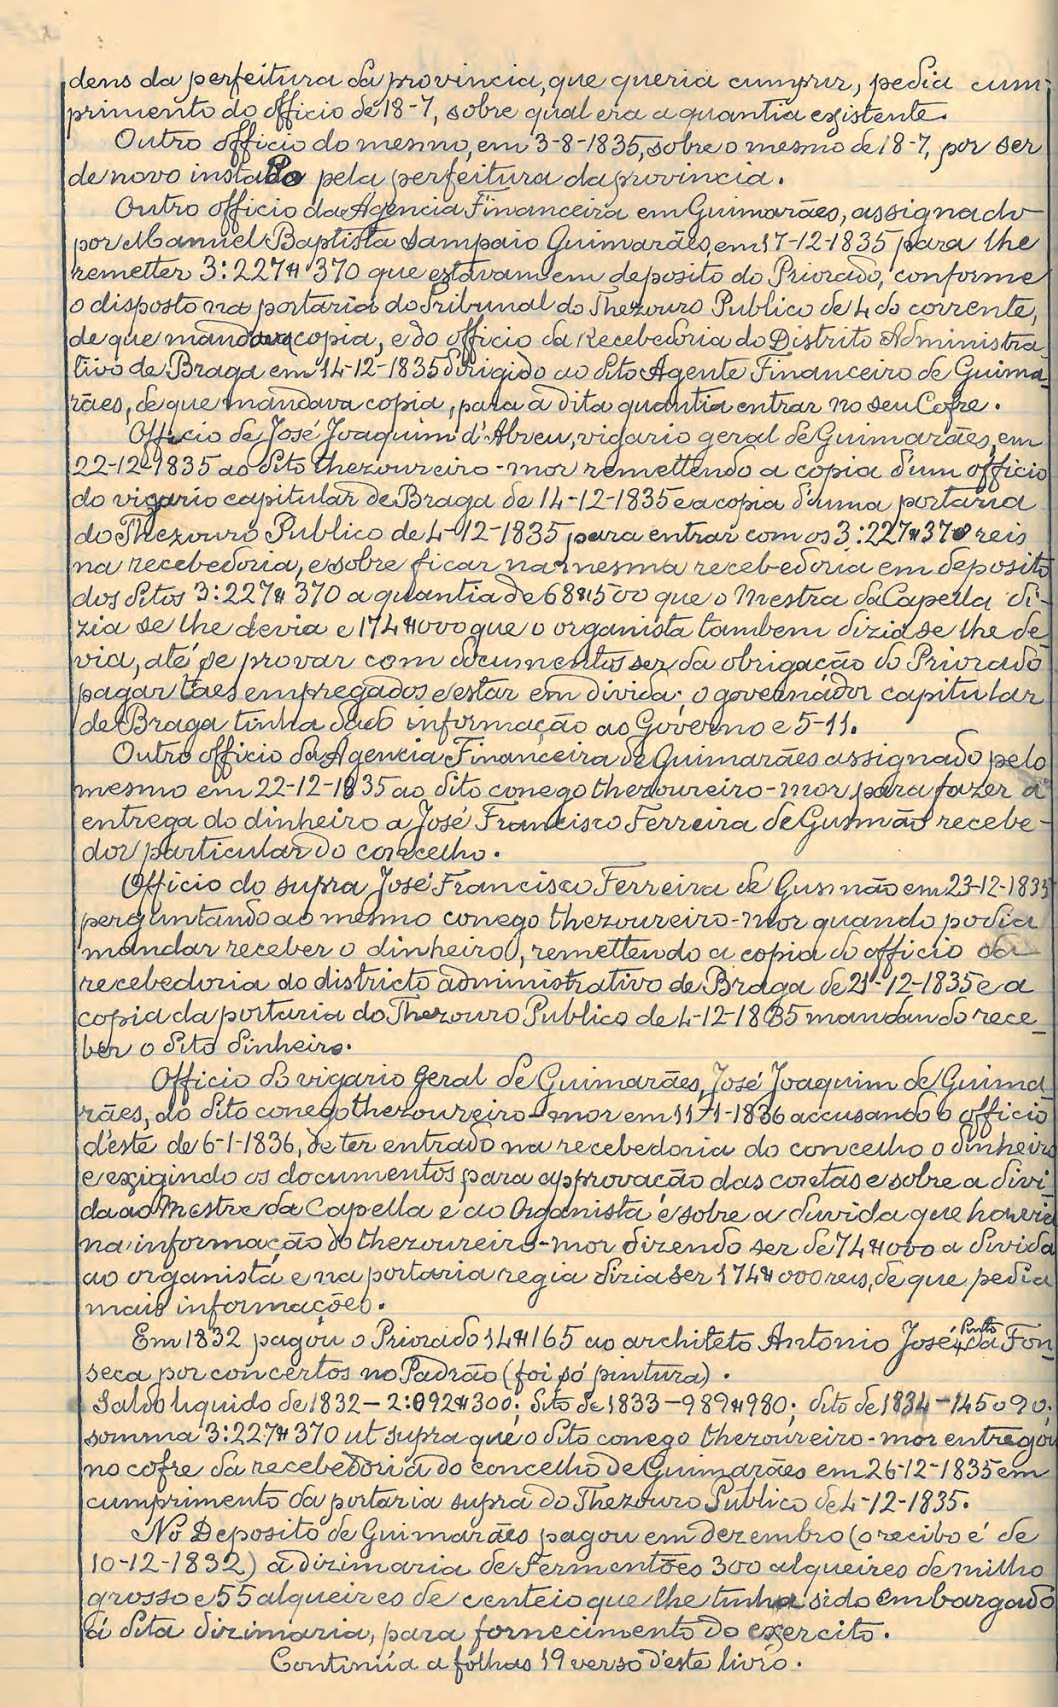 dens da perfeitura da provincia, que queria cumprir, pedia cum-
primento do officio de 18-7, sobre qual era a quantia existente.
Outro officio do mesmo, em 3-8-1835, sobre o mesmo de 18-7, por ser
de novo instado pela perfeitura da provincia.
Outro officio da Agencia Financeira em Guimarães, assignado
por Manuel Baptista Sampaio Guimarães, em 17-12-1835 para lhe
remetter 3:227$370 que estavam em deposito do Priorado, conforme
o disposto na portaria do Tribunal do Thezouro Publico de 4 do corrente,
de que mandava copia, e do officio da Recebedoria do Distrito Administra-
tivo de Braga em 14-12-1835 dirigido ao dito Agente Financeiro de Guima-
rães, de que mandava copia, para a dita quantia entrar no seu Cofre.
Officio de José Joaquim d'Abreu, vigario geral de Guimarães, em
22-12-1835 ao dito thezoureiro-mor remettendo a copia d'um officio
do vigario capitular de Braga de 14-12-1835 e a copia d'uma portaria
do Thezouro Publico de 4-12-1835 para entrar com os 3:227$370 reis
na recebedoria, e sobre ficar na mesma recebedoria em deposito
dos ditos 3:227$370 a quantia de 68$500 que o Mestra da Capella di-
zia se lhe devia e 174$000 que o organista tambem dizia se lhe de-
via, até se provar com documentos ser da obrigação do Priorado
pagar taes empregados e estar em divida; o governador capitular
de Braga tinha dado informação ao Governo e 5-11.
Outro officio da Agencia Financeira de Guimarães assignado pelo
mesmo em 22-12-1835 ao dito conego thezoureiro-mor para fazer a
entrega do dinheiro a José Francisco Ferreira de Gusmão recebe-
dor particular do concelho.
Officio do supra José Francisco Ferreira de Gusmão em 23-12-1835
perguntando ao mesmo conego thezoureiro-mor quando podia
mandar receber o dinheiro, remettendo a copia do officio da
recebedoria do districto administrativo de Braga de 21-12-1835 e a
copia da portaria do Thezouro Publico de 4-12-1835 mandando rece-
ber o dito dinheiro.
Officio do vigario geral de Guimarães, José Joaquim de Guima-
rães, ao dito conego thezoureiro-mor em 11-1-1836 accusando o officio
d'este de 6-1-1836, de ter entrado na recebedoria do concelho o dinheiro
e exigindo os documentos para approvação das contas e sobre a divi-
da ao Mestre da Capella e ao Organista e sobre a duvida que haveria
na informação do thezoureiro-mor dizendo ser de 74$000 a divida
ao organista e na portaria regia dizia ser 174$000 reis, de que pedia
mais informações.
Em 1832 pagou o Priorado 14$165 ao architeto Antonio José Pinto da Fon-
seca por concertos no Padrão (foi só pintura).
Saldo liquido de 1832 - 2:092$300; dito de 1833 - 989$980; dito de 1834 - 145090;
somma 3:227$370 ut supra que o dito conego thezoureiro-mor entregou
no cofre da recebedoria do concelho de Guimarães em 26-12-1835 em
cumprimento da portaria supra do Thezouro Publico de 4-12-1835.
No Deposito de Guimarães pagou em dezembro (o recibo é de
10-12-1832) a dizimaria de Fermentões 300 alqueires de milho
grosso e 55 alqueires de centeio que lhe tinha sido embargado
á dita dizimaria, para fornecimento do exercito.
Continúa a folhas 19 verso d'este livro.